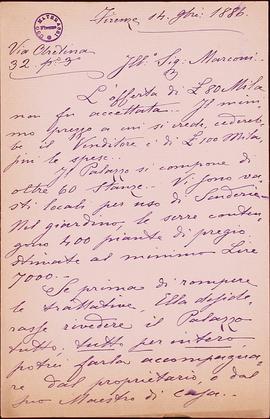 Firenze 14. 9bri 1886.
Via Ghibellina
32. p.° 3°
Ill.° Sig. Marconi..
L'offerta di £ 80 Mila
non fu accettata.. Il mini
mo prezzo a cui si crede, cederеb
be il Venditore è di £ 100 Mila,
più le spese..
Il Palazzo si compone di
oltre 60 Stanze.. Vi sono va
sti locali per uso di Scuderie
Nel giardino, le serre conten
gono 400 piante di pregio,
stimate al minimo Lire
7000..
Se prima di rompere
le trattative, Ella deside,
rasse rivedere il Palazzo
tutto, tutto per intero,
potrei farla accompagna,
re dal proprietario, o dal
suo Maestro di casa..